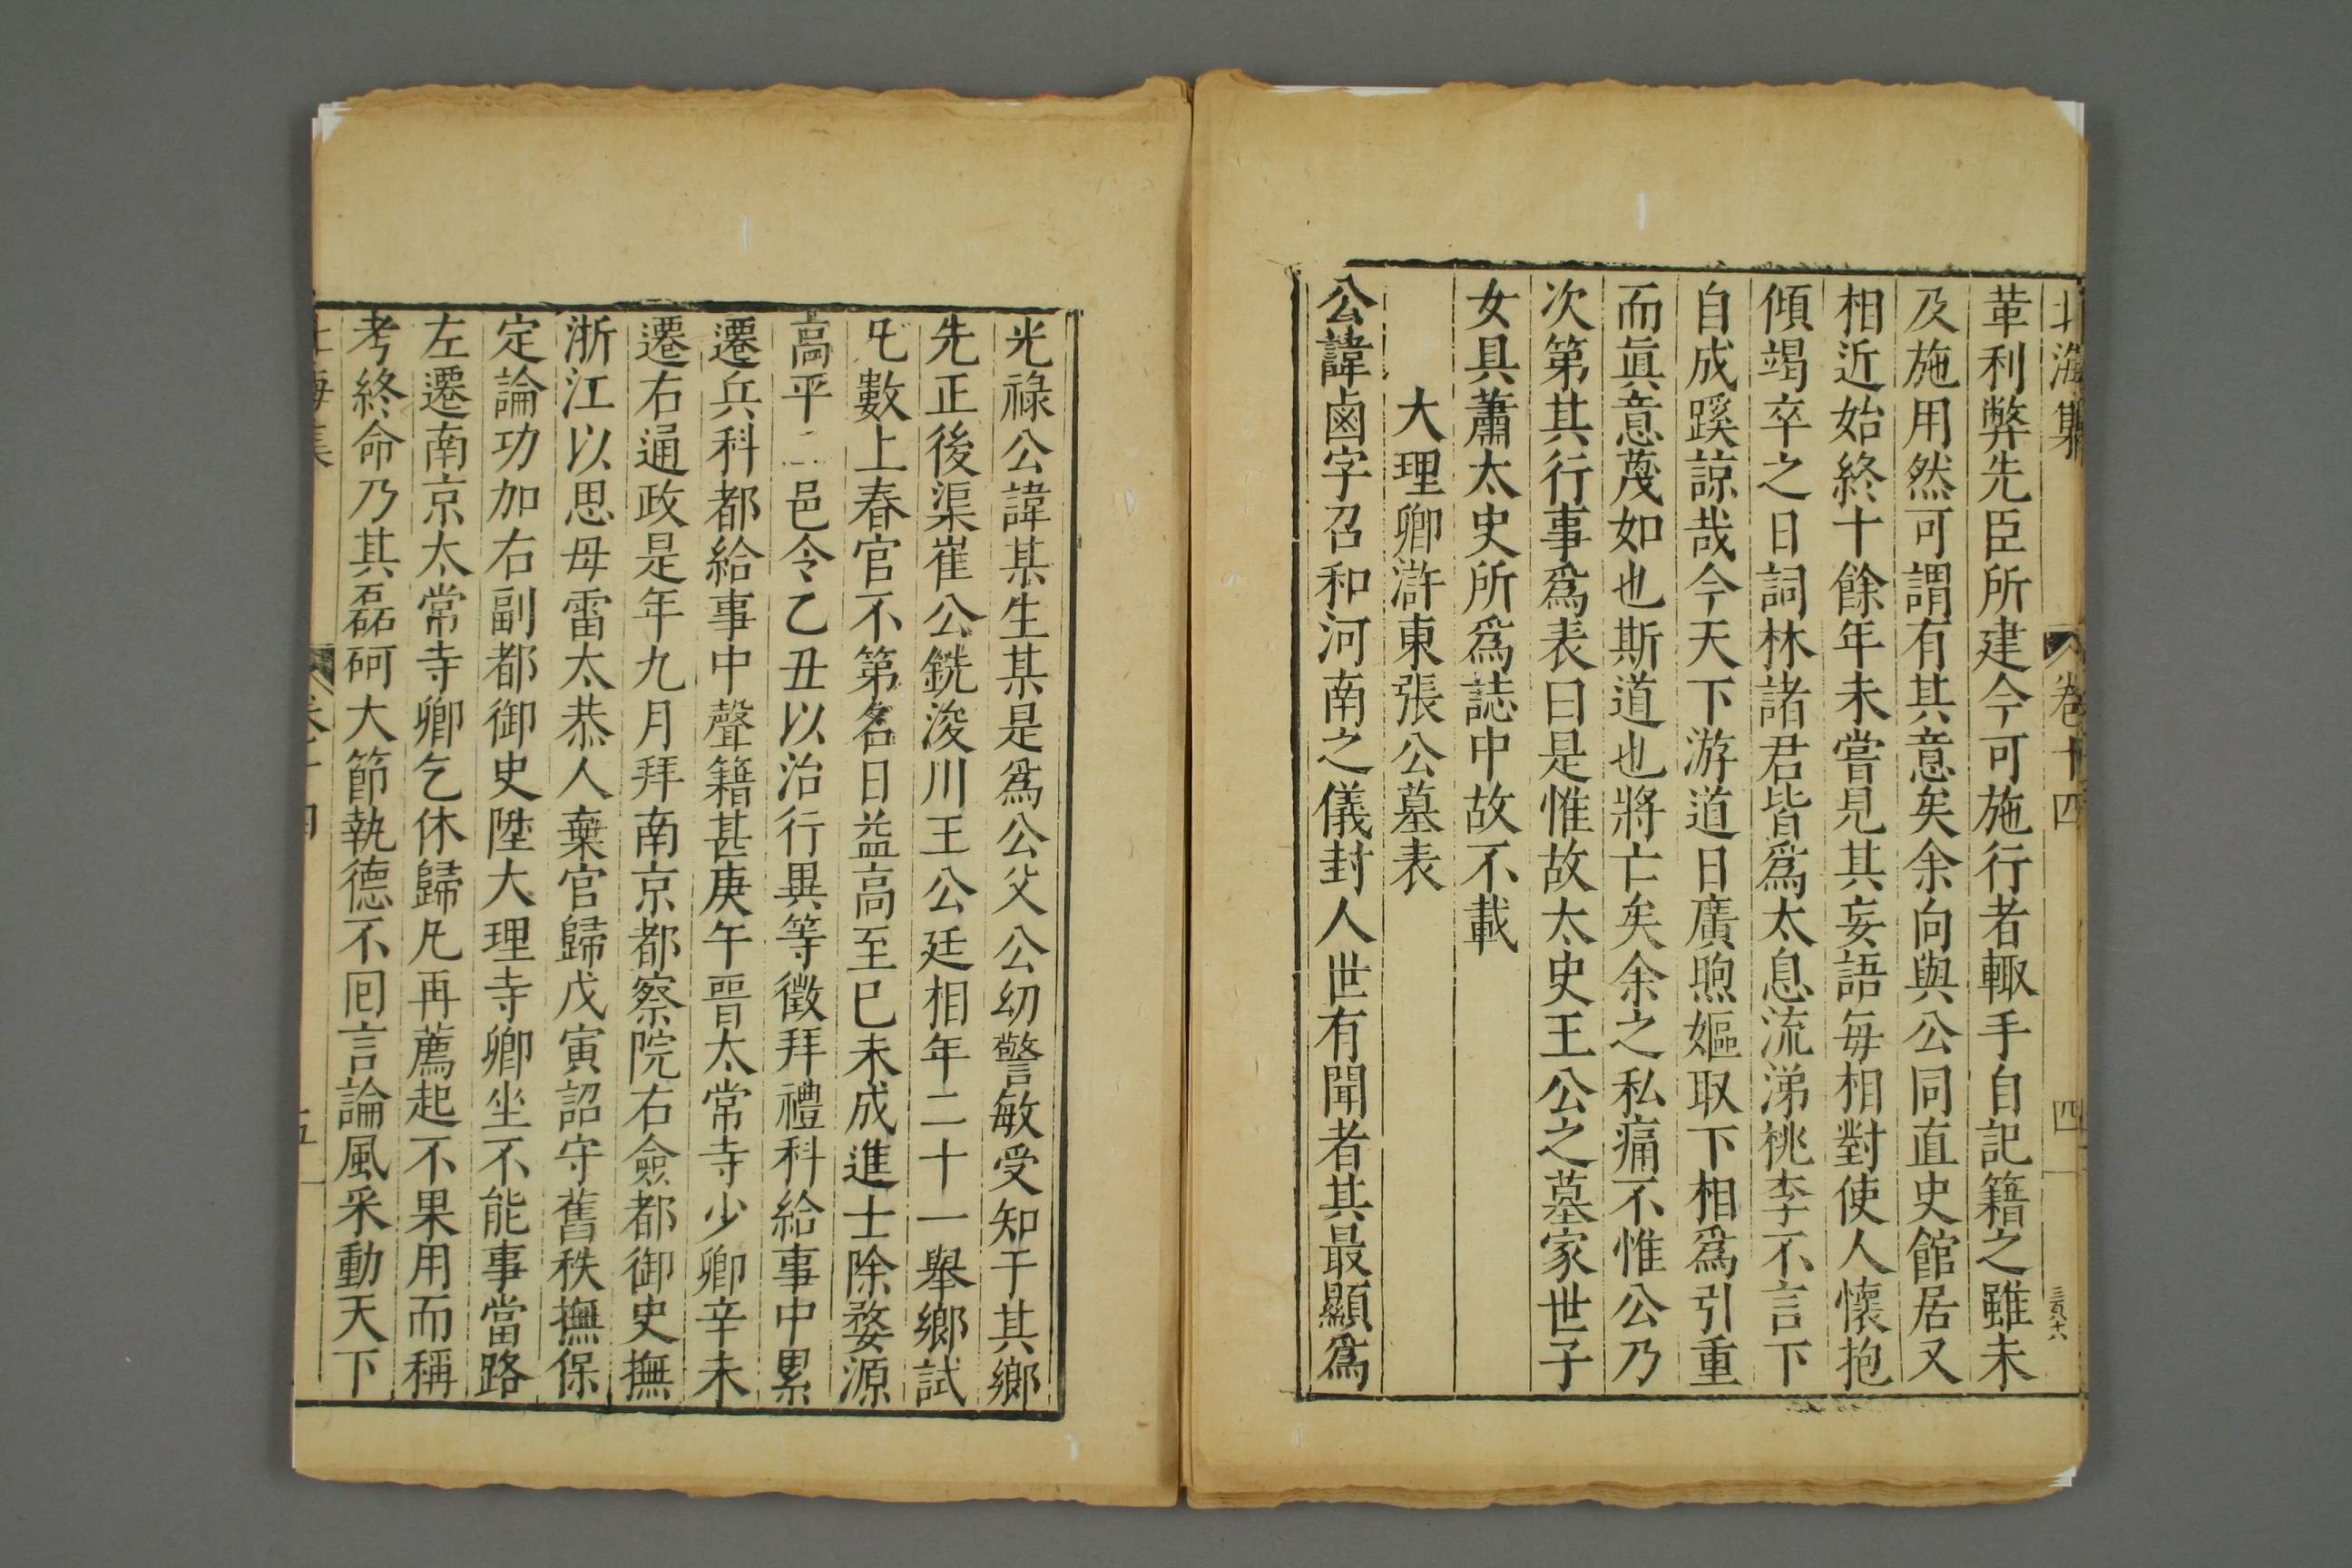 北海集 卷十四 四
革利弊先臣所建今可施行者輙手自記籍之雖未
及施用然可謂有其意矣余向與公同直史館居又
相近始終十餘年未嘗見其妄語每相對使人懷抱
傾竭卒之日詞林諸君皆爲太息流涕桃李不言下
自成蹊諒哉今天下游道日廣煦嫗取下相爲引重
而眞意蔑如也斯道也將亡矣余之私痛不惟公乃
次第其行事爲表曰是惟故太史王公之墓家世子
女具蕭太史所爲誌中故不載
大理卿滸東張公墓表
公諱鹵字召和河南之儀封人世有聞者其最顯爲
光祿公諱某生某是爲公父公幼警敏受知于其鄉
先正後渠崔公銑浚川王公廷相年二十一舉鄉試
凡數上春官不第名日益高至己未成進士除婺源
高平二邑令乙丑以治行異等徵拜禮科給事中累
遷兵科都給事中聲籍甚庚午晉太常寺少卿辛未
遷右通政是年九月拜南京都察院右僉都御史撫
浙江以思母雷太恭人棄官歸戊寅詔守舊秩撫保
定論功加右副都御史陞大理寺卿坐不能事當路
左遷南京太常寺卿乞休歸凡再薦起不果用而稱
考終命乃其磊砢大節執德不回言論風采動天下